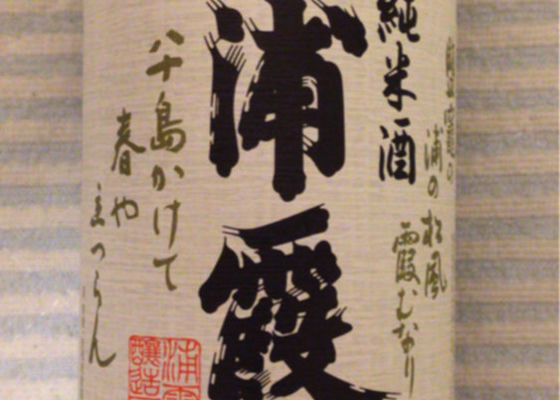 浦の
松風
霞むなり
純米酒
浦霞
八十島かけて
春や
立つらん
浦
醸造